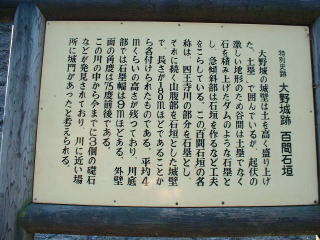 特別史跡 大野城跡 百間石垣
大野城の城壁は土を高く盛り上げ
た「土塁」で囲んでいるが、起伏の
激しい地形のため谷間は土塁でなく
石を積み上げたダムのような石塁と
し、急傾斜部は石垣を作るなど工夫
をこらしている。この百間石垣の名
称は、四王寺川の部分を石塁とし、
それに続く山腹部を石垣とした城壁
で、長さが180mほどであることか
ら名付けられたものである。平均4
mくらいの高さが残っており、川底
部では石塁幅は9mほどある。外壁
面の角度は75度前後である。
この川の中から今までに3個の礎石
などが発見されており、川に近い場
所に城門があったと考えられる。